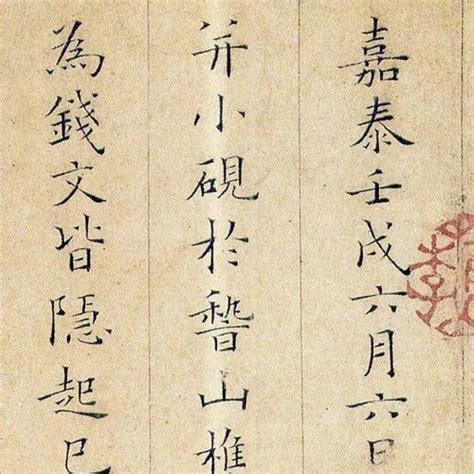 嘉泰壬戌六月六日
并小硯於稽山樵
為錢文皆隱起已